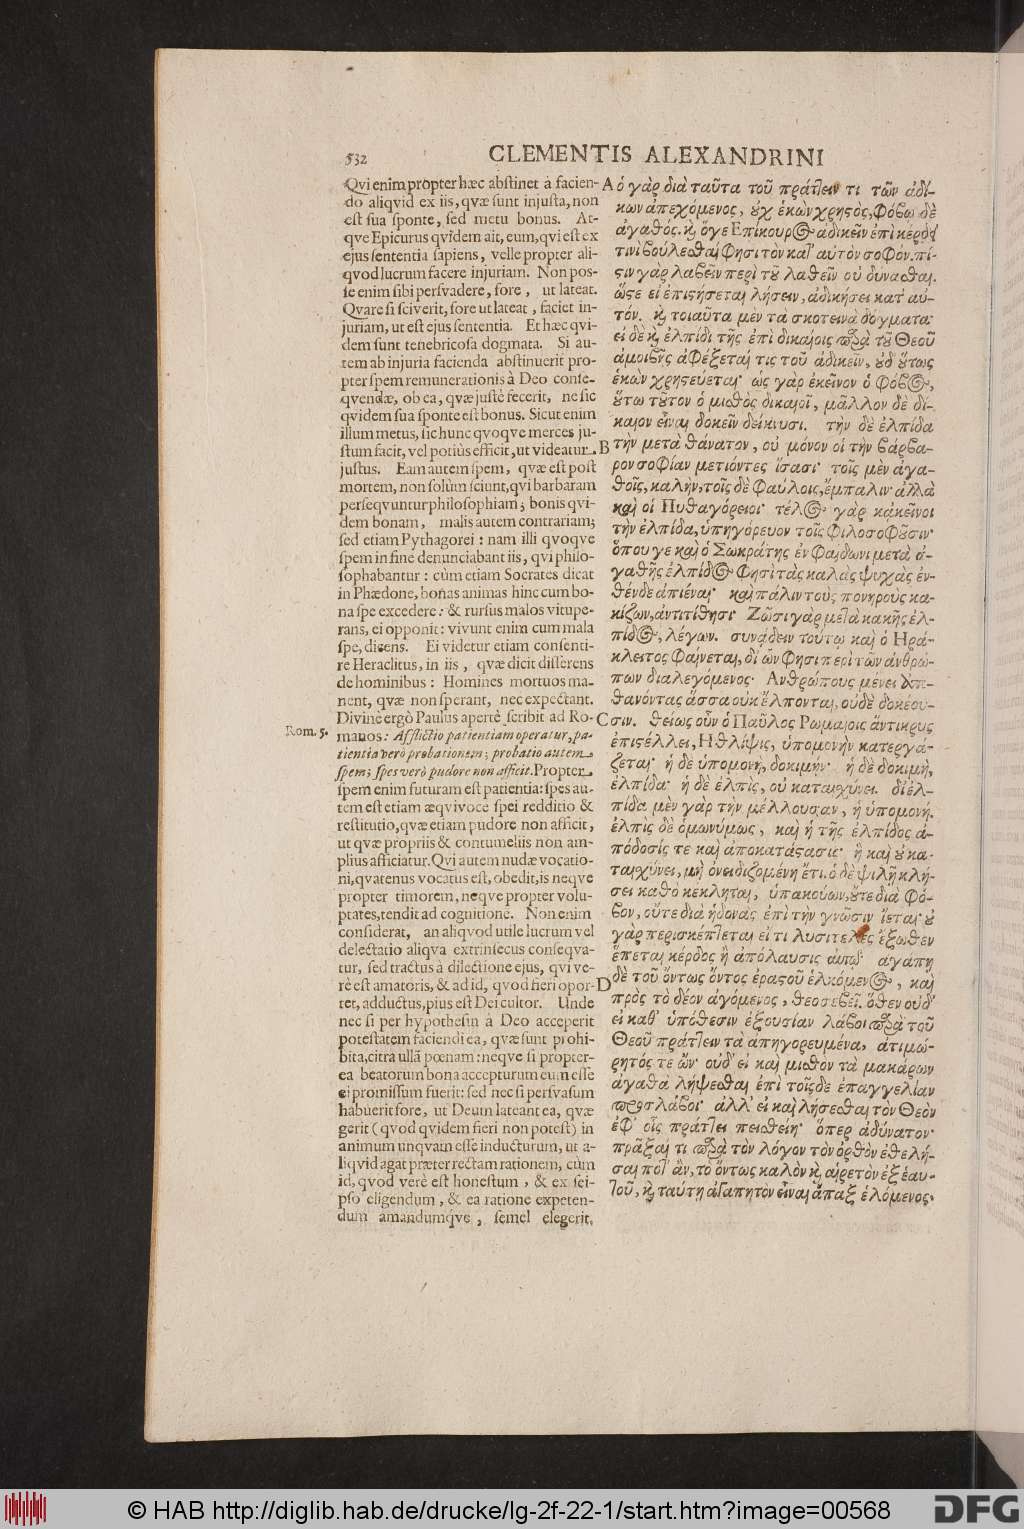 532
CLEMENTIS ALEXANDRINI
Qvi enim propter hæc abstinet à facien-
do aliqvid ex iis, qvæ sunt injusta, non
est sua sponte, sed metu bonus. At-
qve Epicurus qvidem ait, eum, qvi est ex
ejus sententia sapiens, velle propter ali-
qvod lucrum facere injuriam. Non pos-
se enim sibi persvadere, fore, ut lateat.
Qvare si sciverit, fore ut lateat, faciet in-
juriam, ut est ejus sententia. Et hæc qvi-
dem sunt tenebricosa dogmata. Si au-
tem ab injuria facienda abstinuerit pro-
pter spem remunerationis à Deo conse-
qvendæ, ob ea, qvæ justè fecerit, ne sic
qvidem sua sponte est bonus. Sicut enim
illum metus, sic hunc qvoqve merces ju-
stum facit, vel potiùs efficit, ut videatur
justus. Eam autem spem, qvæ est post
mortem, non solùm sciunt, qvi barbaram
perseqvuntur philosophiam; bonis qvi-
dem bonam, malis autem contrariam;
sed etiam Pythagorei: nam illi qvoqve
spem in fine denunciabant iis, qvi philo-
sophabantur: cùm etiam Socrates dicat
in Phædone, bonas animas hinc cum bo-
na spe excedere: & rursus malos vitupe-
rans, ei opponit: vivunt enim cum mala
spe, dicens. Ei videtur etiam consenti-
re Heraclitus, in iis, qvæ dicit disserens
de hominibus: Homines mortuos ma-
nent, qvæ non sperant, nec expectant.
Divinè ergò Paulus apertè scribit ad Ro-
Rom. 5.
manos: Afflictio patientiam operatur, pa-
tientia verò probationem; probatio autem
spem; spes verò pudore non afficit. Propter
spem enim futuram est patientia: spes au-
tem est etiam æqvivocè spei redditio &
restitutio, qvæ etiam pudore non afficit,
ut qvæ propriis & contumeliis non am-
plius afficiatur. Qvi autem nudæ vocatio-
ni, qvatenus vocatus est, obedit, is neqve
propter timorem, neqve propter volu-
ptates, tendit ad cognitionē. Non enim
considerat, an aliqvod utile lucrum vel
delectatio aliqva extrinsecus conseqva-
tur, sed tractus à dilectione ejus, qvi ve-
rè est amatoris, & ad id, qvod fieri opor-
tet, adductus, pius est Dei cultor. Unde
nec si per hypothesin à Deo acceperit
potestatem faciendi ea, qvæ sunt prohi-
bita, citra ullā pœnam: neqve si propter-
ea beatorum bona accepturum eum esse
ei promissum fuerit: sed nec si persvasum
habuerit fore, ut Deum lateant ea, qvæ
gerit (qvod qvidem fieri non potest) in
animum unqvam esse inducturum, ut a-
liqvid agat præter rectam rationem, cùm
id, qvod verè est honestum, & ex sei-
pso eligendum, & ea ratione expeten-
dum amandumqve, semel elegerit.
A ὁ γὰρ διὰ ταῦτα τοῦ πράττειν τι τῶν ἀδί-
κων ἀπεχόμενος, ȣ̓χ ἑκὼν χρηστὸς, φόβω δὲ
ἀγαθός. κ̀ ὅγε Ἐπίκουρος ἀδικεῖν ἐπὶ κέρδει
τινὶ βούλεσθαι φησὶ τὸν κατ' αὐτὸν σοφόν. πί-
στιν γὰρ λαβεῖν περὶ τȣ͂ λαθεῖν οὐ δύνασθαι.
ὥστε εἰ ἐπιστήσεται λήσειν, ἀδικήσει κατ' αὐ-
τόν. κ̀ τοιαῦτα μὲν τὰ σκοτεινὰ δόγματα·
εἰ δὲ κ̀ ἐλπίδι τῆς ἐπὶ δικαίοις παρὰ τȣ͂ Θεοῦ
ἀμοιβῆς ἀφέξεταί τις τοῦ ἀδικεῖν, ȣ̓δ' ȣ̔́τως
ἑκὼν χρηστεύεται· ὡς γὰρ ἐκεῖνον ὁ φόβος,
ȣ̔́τω τȣ͂τον ὁ μισθὸς δικαιοῖ, μᾶλλον δὲ δί-
καιον εἶναι δοκεῖν δείκνυσι. τὴν δὲ ἐλπίδα
B τὴν μετὰ θάνατον, οὐ μόνον οἱ τὴν βάρβα-
ρον σοφίαν μετιόντες ἴσασι· τοῖς μὲν ἀγα-
θοῖς, καλὴν, τοῖς δὲ φαύλοις, ἔμπαλιν· ἀλλὰ
καὶ οἱ Πυθαγόρειοι· τέλος γὰρ κἀκεῖνοι
τὴν ἐλπίδα, ὑπηγόρευον τοῖς φιλοσοφȣ͂σιν·
ὅπου γε καὶ ὁ Σωκράτης ἐν Φαίδωνι μετὰ ἀ-
γαθῆς ἐλπίδος φησὶ τὰς καλὰς ψυχὰς ἐν-
θένδε ἀπιέναι· καὶ πάλιν τοὺς πονηροὺς κα-
κίζων, ἀντιτίθησι· Ζῶσι γὰρ μετὰ κακῆς ἐλ-
πίδος, λέγων. συνᾴδειν τούτῳ καὶ ὁ Ἡρά-
κλειτος φαίνεται, δι' ὧν φησὶ περὶ τῶν ἀνθρώ-
πων διαλεγόμενος· Ἀνθρώπους μένει ἀπο-
θανόντας ἅσσα οὐκ ἔλπονται, οὐδὲ δοκέου-
C σιν. θείως οὖν ὁ Παῦλος Ρωμαίοις ἄντικρυς
ἐπιστέλλει, Ἡ θλίψις, ὑπομονὴν κατεργά-
ζεται· ἡ δὲ ὑπομονὴ, δοκιμήν· ἡ δὲ δοκιμὴ,
ἐλπίδα· ἡ δὲ ἐλπὶς, οὐ καταισχύνει. δι' ἐλ-
πίδα μὲν γὰρ τὴν μέλλουσαν, ἡ ὑπομονή.
ἐλπὶς δὲ ὁμωνύμως, καὶ ἡ τῆς ἐλπίδος ἀ-
πόδοσίς τε καὶ ἀποκατάστασις· ἣ καὶ ȣ̓ κα-
ταισχύνει, μὴ ὀνειδιζομένη ἔτι. ὁ δὲ ψιλῇ κλή-
σει καθὸ κέκληται, ὑπακούων, ȣ̓́τε διὰ φό-
βον, οὔτε διὰ ἡδονὰς ἐπὶ τὴν γνῶσιν ἵεται· ȣ̓
γὰρ περισκέπτεται εἴ τι λυσιτελὲς ἔξωθεν
ἕπεται κέρδος ἢ ἀπόλαυσις αὐτῷ· ἀγάπῃ
D δὲ τοῦ ὄντως ὄντος ἐραστοῦ ἑλκόμενος, καὶ
πρὸς τὸ δέον ἀγόμενος, θεοσεβεῖ. ὅθεν οὐδ'
εἰ καθ' ὑπόθεσιν ἐξουσίαν λάβοι παρὰ τοῦ
Θεοῦ πράττειν τὰ ἀπηγορευμένα, ἀτιμώ-
ρητός τε ὤν· οὐδ' εἰ καὶ μισθὸν τὰ μακάρων
ἀγαθὰ λήψεσθαι ἐπὶ τοῖςδε ἐπαγγελίαν
προσλάβοι· ἀλλ' εἰ καὶ λήσεσθαι τὸν Θεὸν
ἐφ' οἷς πράττει πεισθείη· ὅπερ ἀδύνατον·
πρᾶξαι τι παρὰ τὸν λόγον τὸν ὀρθὸν ἐθελή-
σαι ποτ' ἂν, τὸ ὄντως καλὸν κ̀ αἱρετὸν ἐξ ἑαυ-
τοῦ, κ̀ ταύτῃ ἀγαπητὸν εἶναι ἅπαξ ἑλόμενος.
© HAB http://diglib.hab.de/drucke/lg-2f-22-1/start.htm?image=00568
DFG